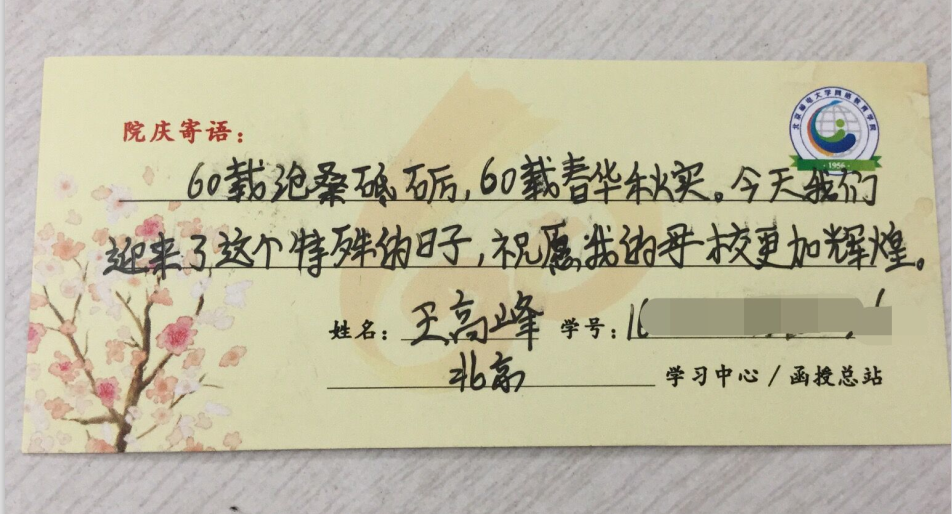 北京邮电大学网络教育学院
1956
院庆寄语：
60载沧桑砥砺，60载春华秋实。今天我们
迎来了这个特殊的日子，祝愿我的母校更加辉煌。
姓名：王高峰 学号：1
北京 学习中心/函授总站